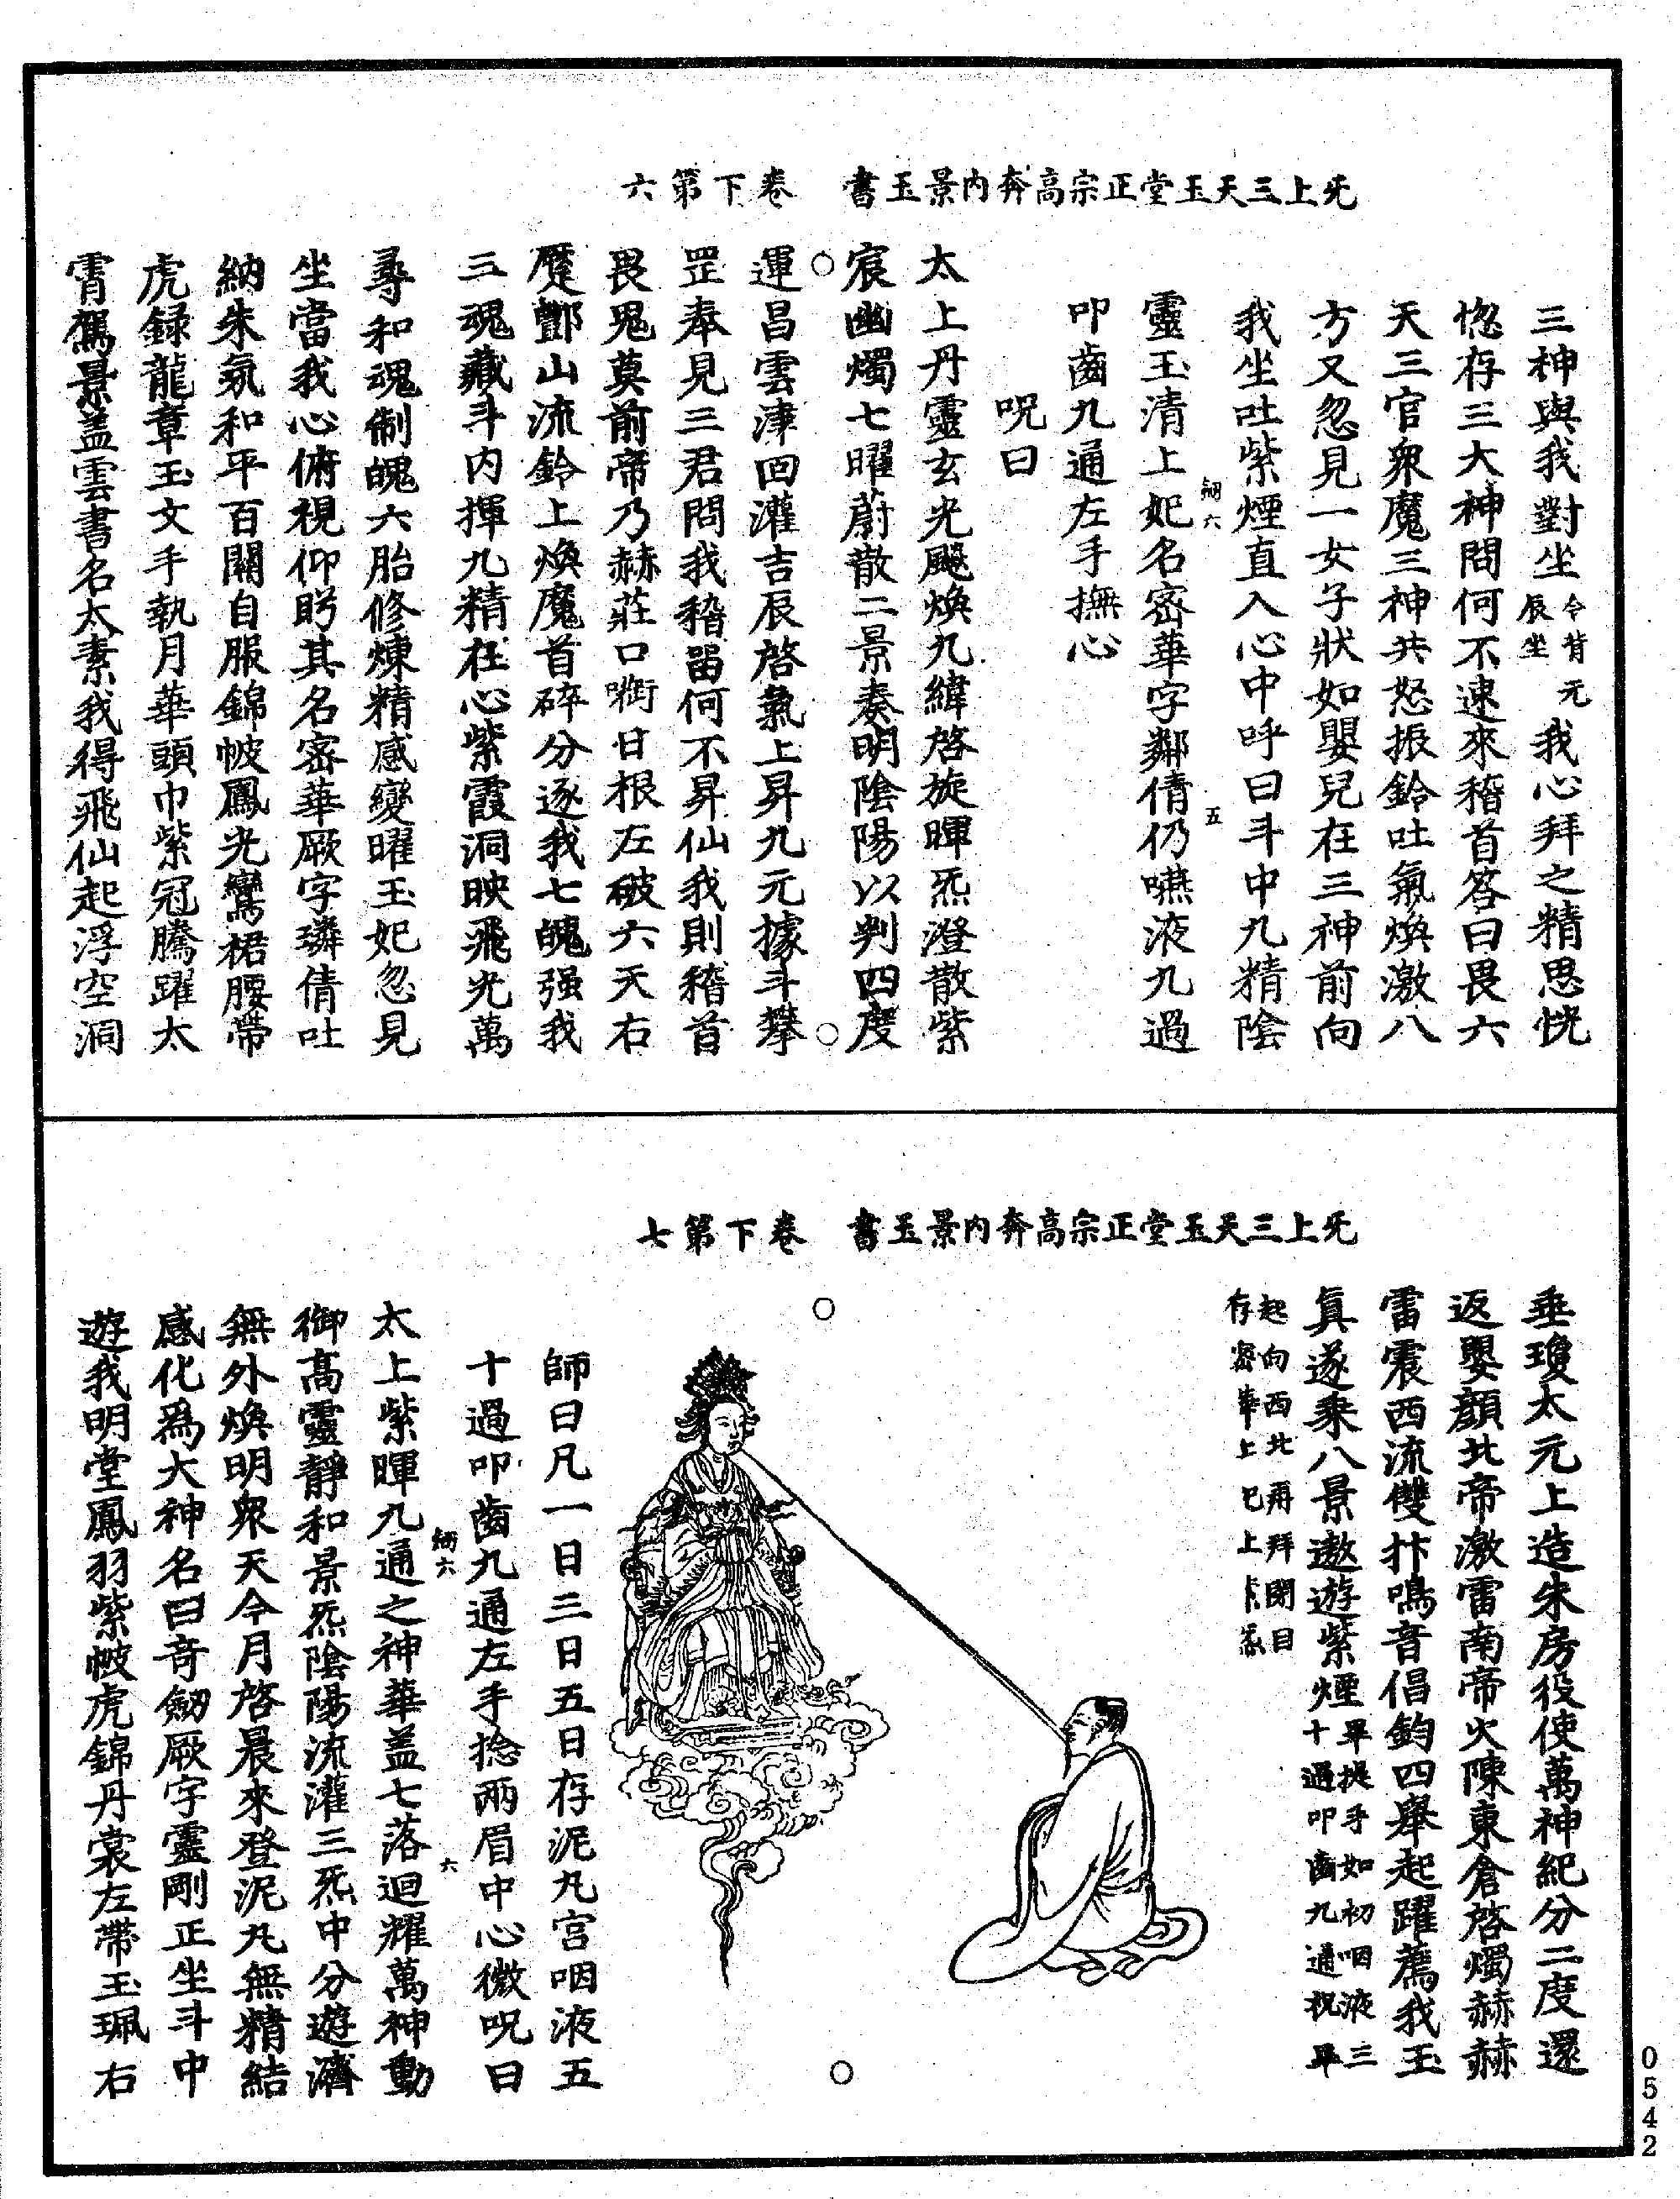 旡上三天玉堂正宗高奔內景玉書　卷下第六
三神與我對坐令背元辰坐我心拜之精思恍
惚存三大神問何不速來稽首答曰畏六
天三官衆魔三神共怒振鈴吐氣煥激八
方又忽見一女子狀如嬰兒在三神前向
我坐吐紫煙直入心中呼曰斗中九精陰
六　五
靈玉清上妃名密華字鄰倩仍嚥液九過
叩齒九通左手撫心
呪曰
太上丹靈玄光飈煥九緯啓旋暉炁澄散紫
宸幽燭七曜蔚散二景奏明陰陽以判四度
運昌雲津回灌吉辰啓氣上昇九元據斗攀
罡奉見三君問我稽畱何不昇仙我則稽首
畏鬼莫前帝乃赫莊口嘲甘根左破六天右
蹙酆山流鈴上煥魔首碎分逐我七魄强我
三魂藏斗内揮九精在心紫霞洞映飛光萬
尋和魂制魄六胎修煉精感變曜玉妃忽見
坐當我心俯視仰眄其名密華厥字璘倩吐
納朱氛和平百關自服錦帔鳳光鸞裙腰帶
虎錄龍章玉文手執月華頭巾紫冠騰躍太
霄駕景盖雲書名太素我得飛仙起浮空洞
旡上三天玉堂正宗高奔內景玉書　卷下第七
垂瓊太元上造朱房役使萬神紀分二度還
返嬰顔北帝激雷南帝火陳東倉啓燭赫赫
雷震西流雙抃鳴音倡鈞四舉起躍薦我玉
眞遂乘八景遨遊紫煙畢提手如初咽液三十過叩齒九通祝畢
起向西北再拜閉目存密華上
師曰凡一日三日五日存泥丸宮咽液五
十過叩齒九通左手捻兩眉中心微呪曰
六　六
太上紫暉九通之神華盖七落迴耀萬神動
御高靈靜和景炁陰陽流灌三炁中分遊濟
無外煥明衆天今月啓晨來登泥丸無精結
感化爲大神名曰奇劒厥字靈剛正坐斗中
遊我明堂鳳羽紫帔虎錦丹裳左帶玉珮右
0542